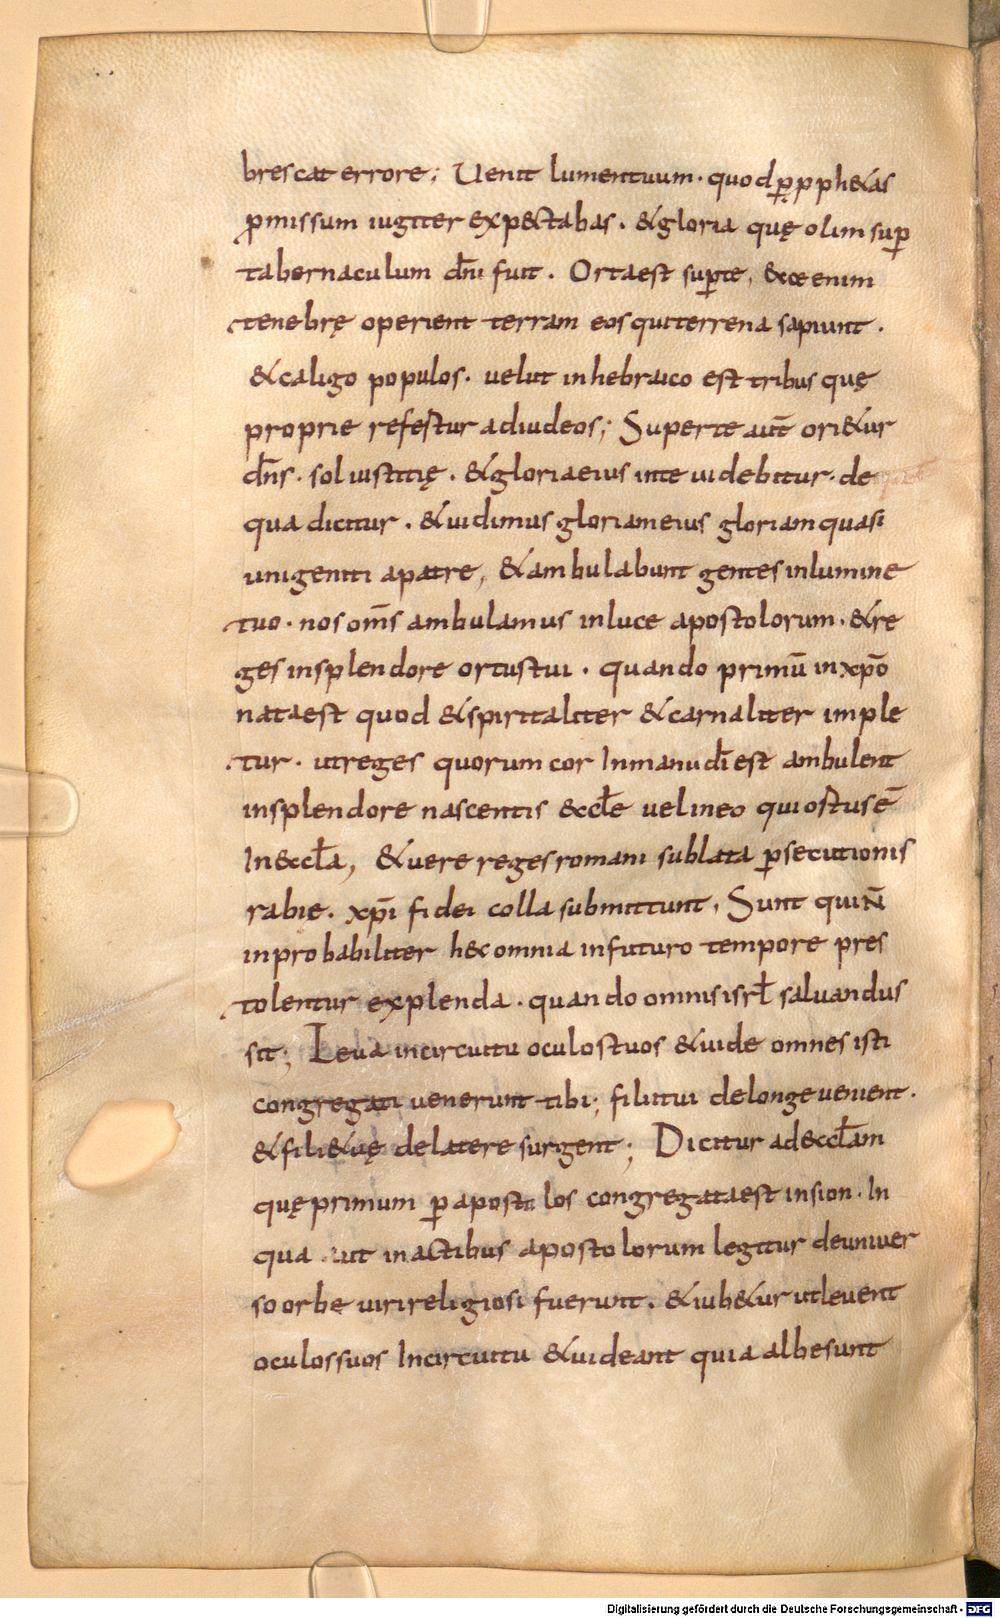 brescat errore; Uenit lumentuum. quod p̱ p̱phetas
ꝓmissum iugiter expectabas. &gloria quę olim suꝑ
tabernaculum dn̄i fuit. Ortaest suꝑte, &cce enim
tenebrę operient terram eos quiterrena sapiunt.
&caligo populos. velut inhebraico est tribus quę
proprie refestur adiudeos; Superte aut̄ ori&ur
dn̄s. sol iustitię. &gloriaeius inte uidebitur. de
qua dicitur. &uidimus gloriameius gloriam quasi
unigeniti apatre, &ambulabunt gentes inlumine
tuo. nos om̄s ambulamus inluce apostolorum. &re
ges insplendore ortustui. quando primū inxp̄o
nataest quod &spiritaliter &carnaliter imple
tur. utreges quorum cor Inmanudī est ambulent
insplendore nascentis &ccłe velineo quiostusē
In&ccła, &uere reges romani sublata ꝑsecutionis
rabie. xp̄i fidei colla submittunt, Sunt quiN̄
inprobabiliter h&c omnia infuturo tempore pres
tolentur explenda. quando omnis isrł saluandus
sit; Leua incircuitu oculostuos &uide omnes isti
congregati uenerunt tibi; filiitui delonge uenient.
&fili&uę delatere surgent; Dicitur ad&ccłam
quę primum ꝑ apostolos congregataest insion. In
qua ut inactibus apostolorum legitur deuniuer
so orbe uirireligiosi fuerunt. &iub&ur utleuent
oculossuos Incircuitu &uideant quia albesunt
Digitalisierung gefördert durch die Deutsche Forschungsgemeinschaft - DFG